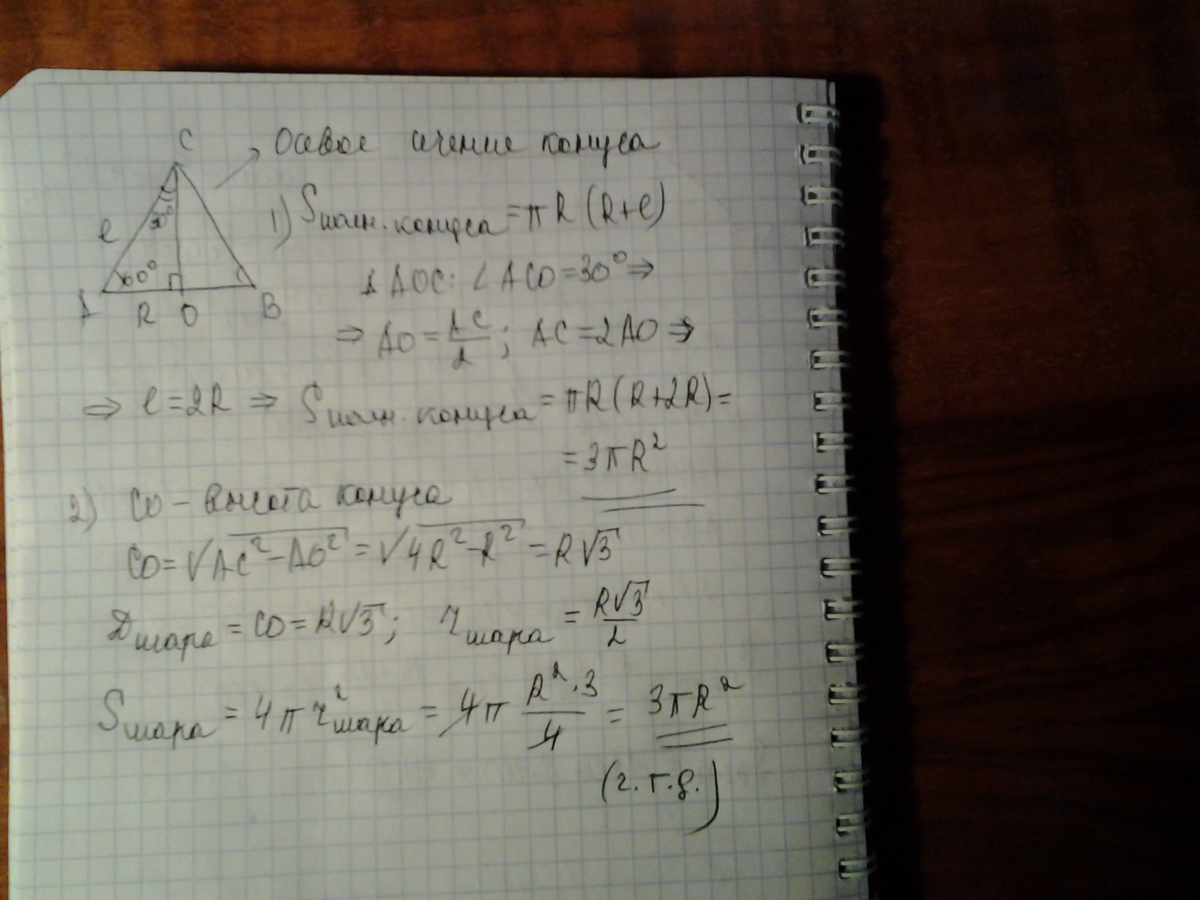 C
→ Осевое сечение конуса
30°
l
60°
A R O B
1) Sполн. конуса = πR (R+l)
Δ AOC: ∠ACO=30° ⇒
⇒ AO = AC/2; AC = 2AO ⇒
⇒ l = 2R ⇒ Sполн. конуса = πR(R+2R) =
= 3πR²
2) CO – высота конуса
CO = √AC²−AO² = √4R²−R² = R√3
Dшара = CO = R√3; rшара = R√3/2
Sшара = 4πr²шара = 4π R²·3/4 = 3πR²
(ч.т.д.)